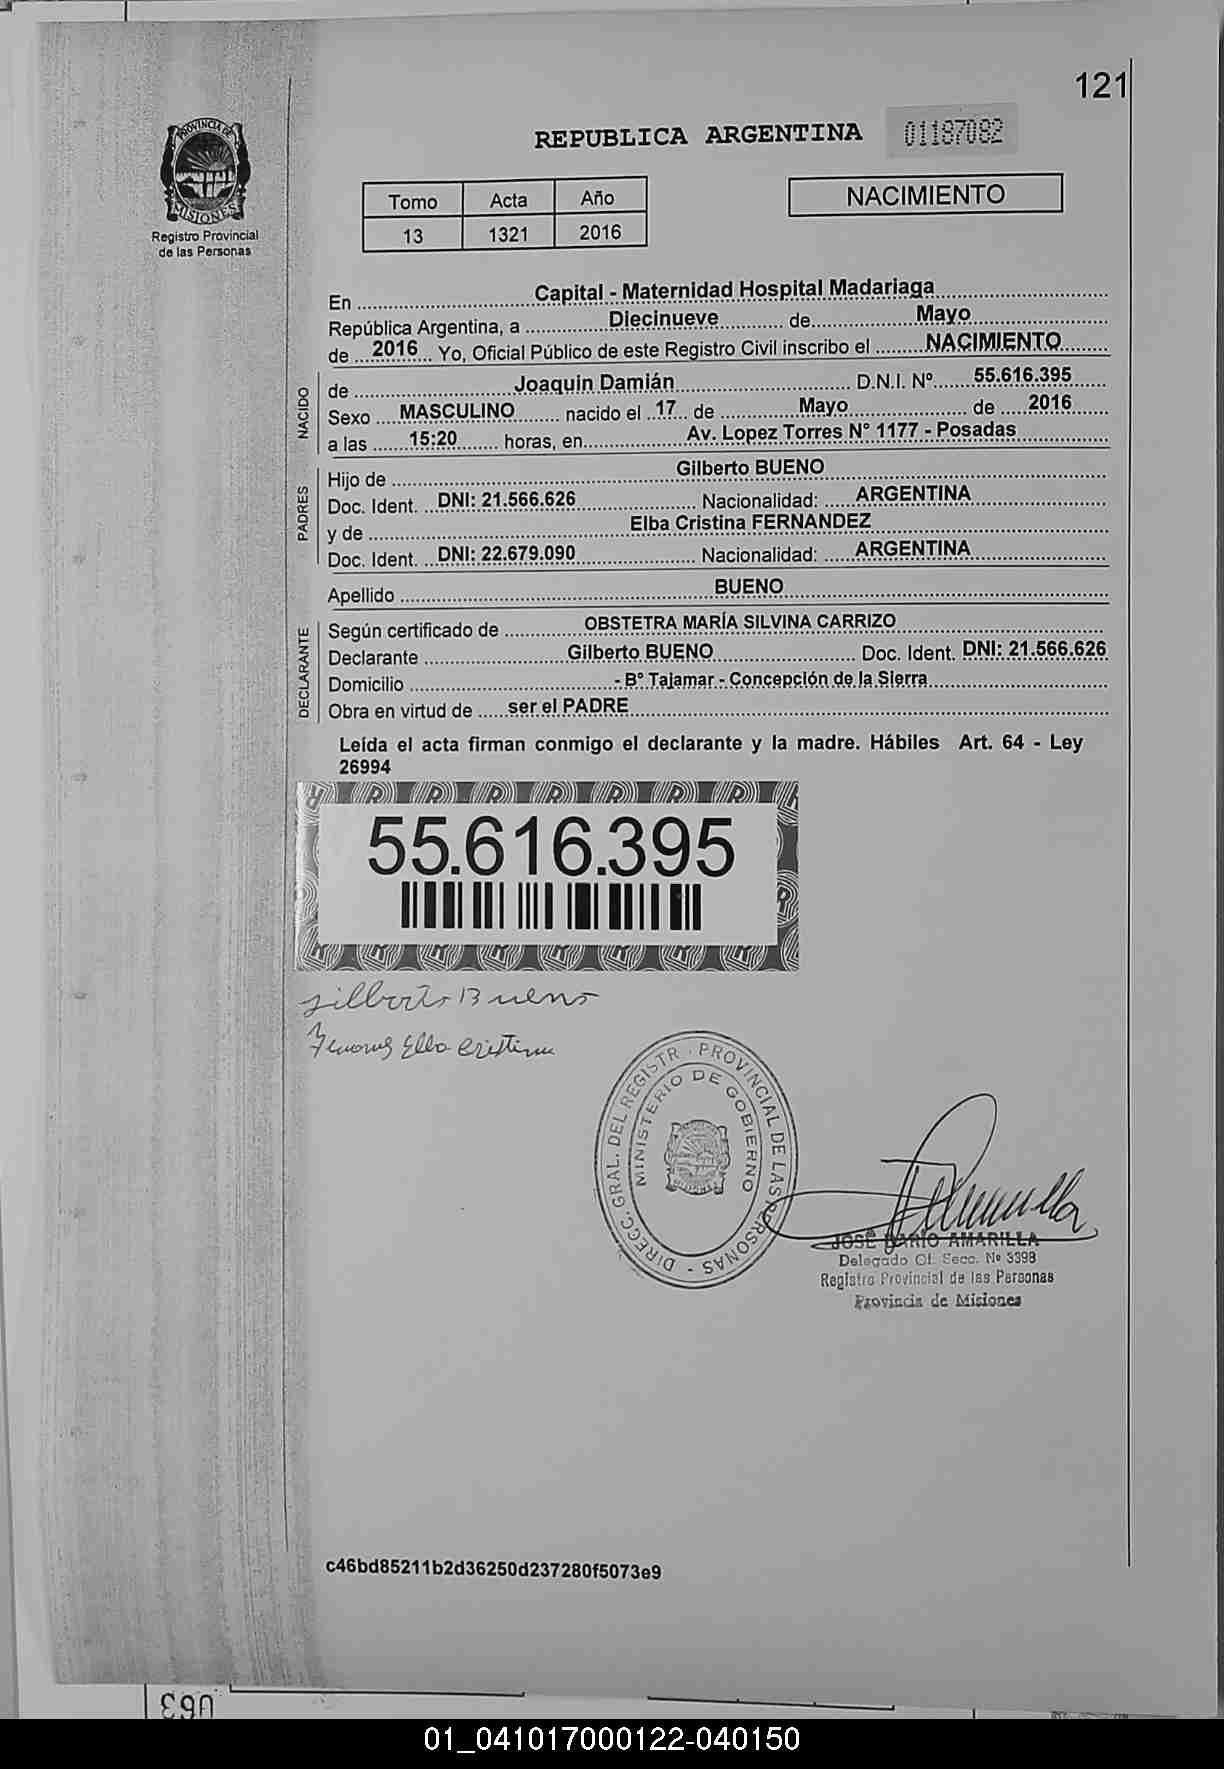 121
PROVINCIA DE
MISIONES
Registro Provincial
de las Personas
REPUBLICA ARGENTINA 01187082
Tomo Acta Año
13 1321 2016
NACIMIENTO
En Capital - Maternidad Hospital Madariaga
República Argentina, a Diecinueve de Mayo
de 2016 Yo, Oficial Público de este Registro Civil inscribo el NACIMIENTO
NACIDO
de Joaquin Damián D.N.I. Nº 55.616.395
Sexo MASCULINO nacido el 17 de Mayo de 2016
a las 15:20 horas, en Av. Lopez Torres N° 1177 - Posadas
PADRES
Hijo de Gilberto BUENO
Doc. Ident. DNI: 21.566.626 Nacionalidad: ARGENTINA
y de Elba Cristina FERNANDEZ
Doc. Ident. DNI: 22.679.090 Nacionalidad: ARGENTINA
Apellido BUENO
DECLARANTE
Según certificado de OBSTETRA MARÍA SILVINA CARRIZO
Declarante Gilberto BUENO Doc. Ident. DNI: 21.566.626
Domicilio - B° Tajamar - Concepción de la Sierra
Obra en virtud de ser el PADRE
Leída el acta firman conmigo el declarante y la madre. Hábiles Art. 64 - Ley
26994
55.616.395
Gilberto Bueno
Elba Cristina
DIRECC. GRAL. DEL REGISTR. PROVINCIAL DE LAS PERSONAS -
MINISTERIO DE GOBIERNO
MISIONES
JOSÉ DARÍO AMARILLA
Delegado Of. Secc. Nº 3398
Registro Provincial de las Personas
Provincia de Misiones
c46bd85211b2d36250d237280f5073e9
01_041017000122-040150